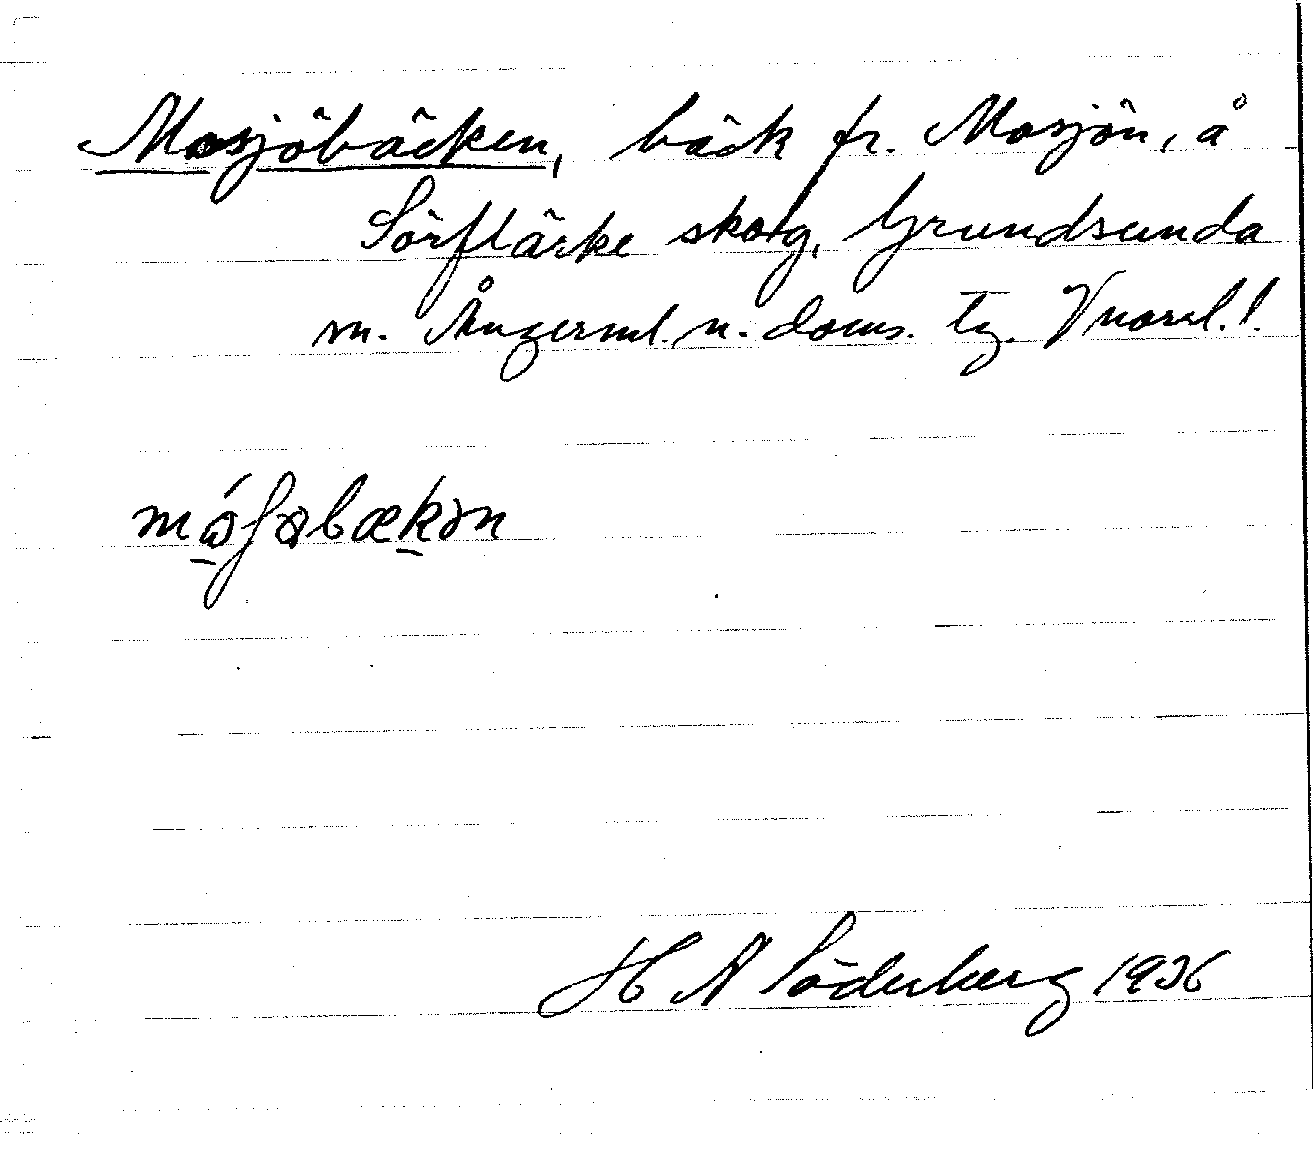 Mosjöbäcken, bäck fr. Mosjön, å
Sörflärke skog, Grundsunda
sn. Ångerml. n. doms. tg. Vnorrl.!
H A Söderberg 1936